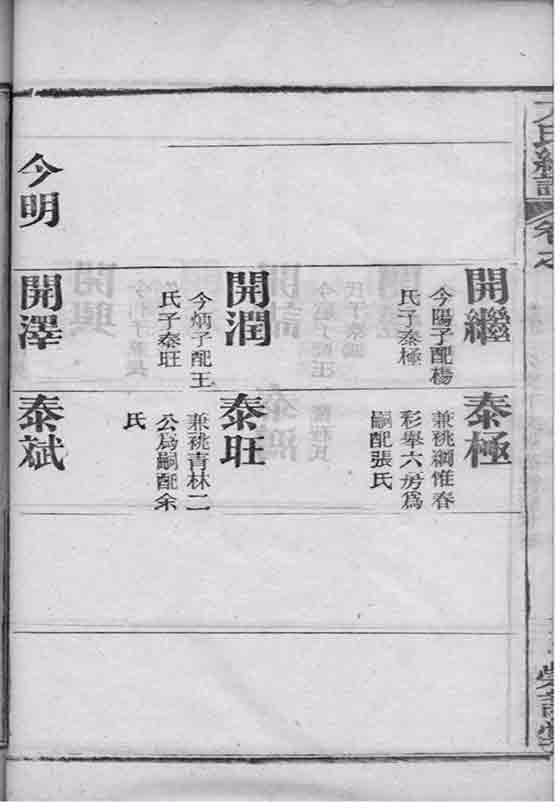 今明
開繼
今陽子配楊
氏子泰極
開潤
今炳子配王
氏子泰旺
開澤
泰極
兼祧綱惟春
彩舉六房爲
嗣配張氏
泰旺
兼祧青林二
公爲嗣配余
氏
泰斌